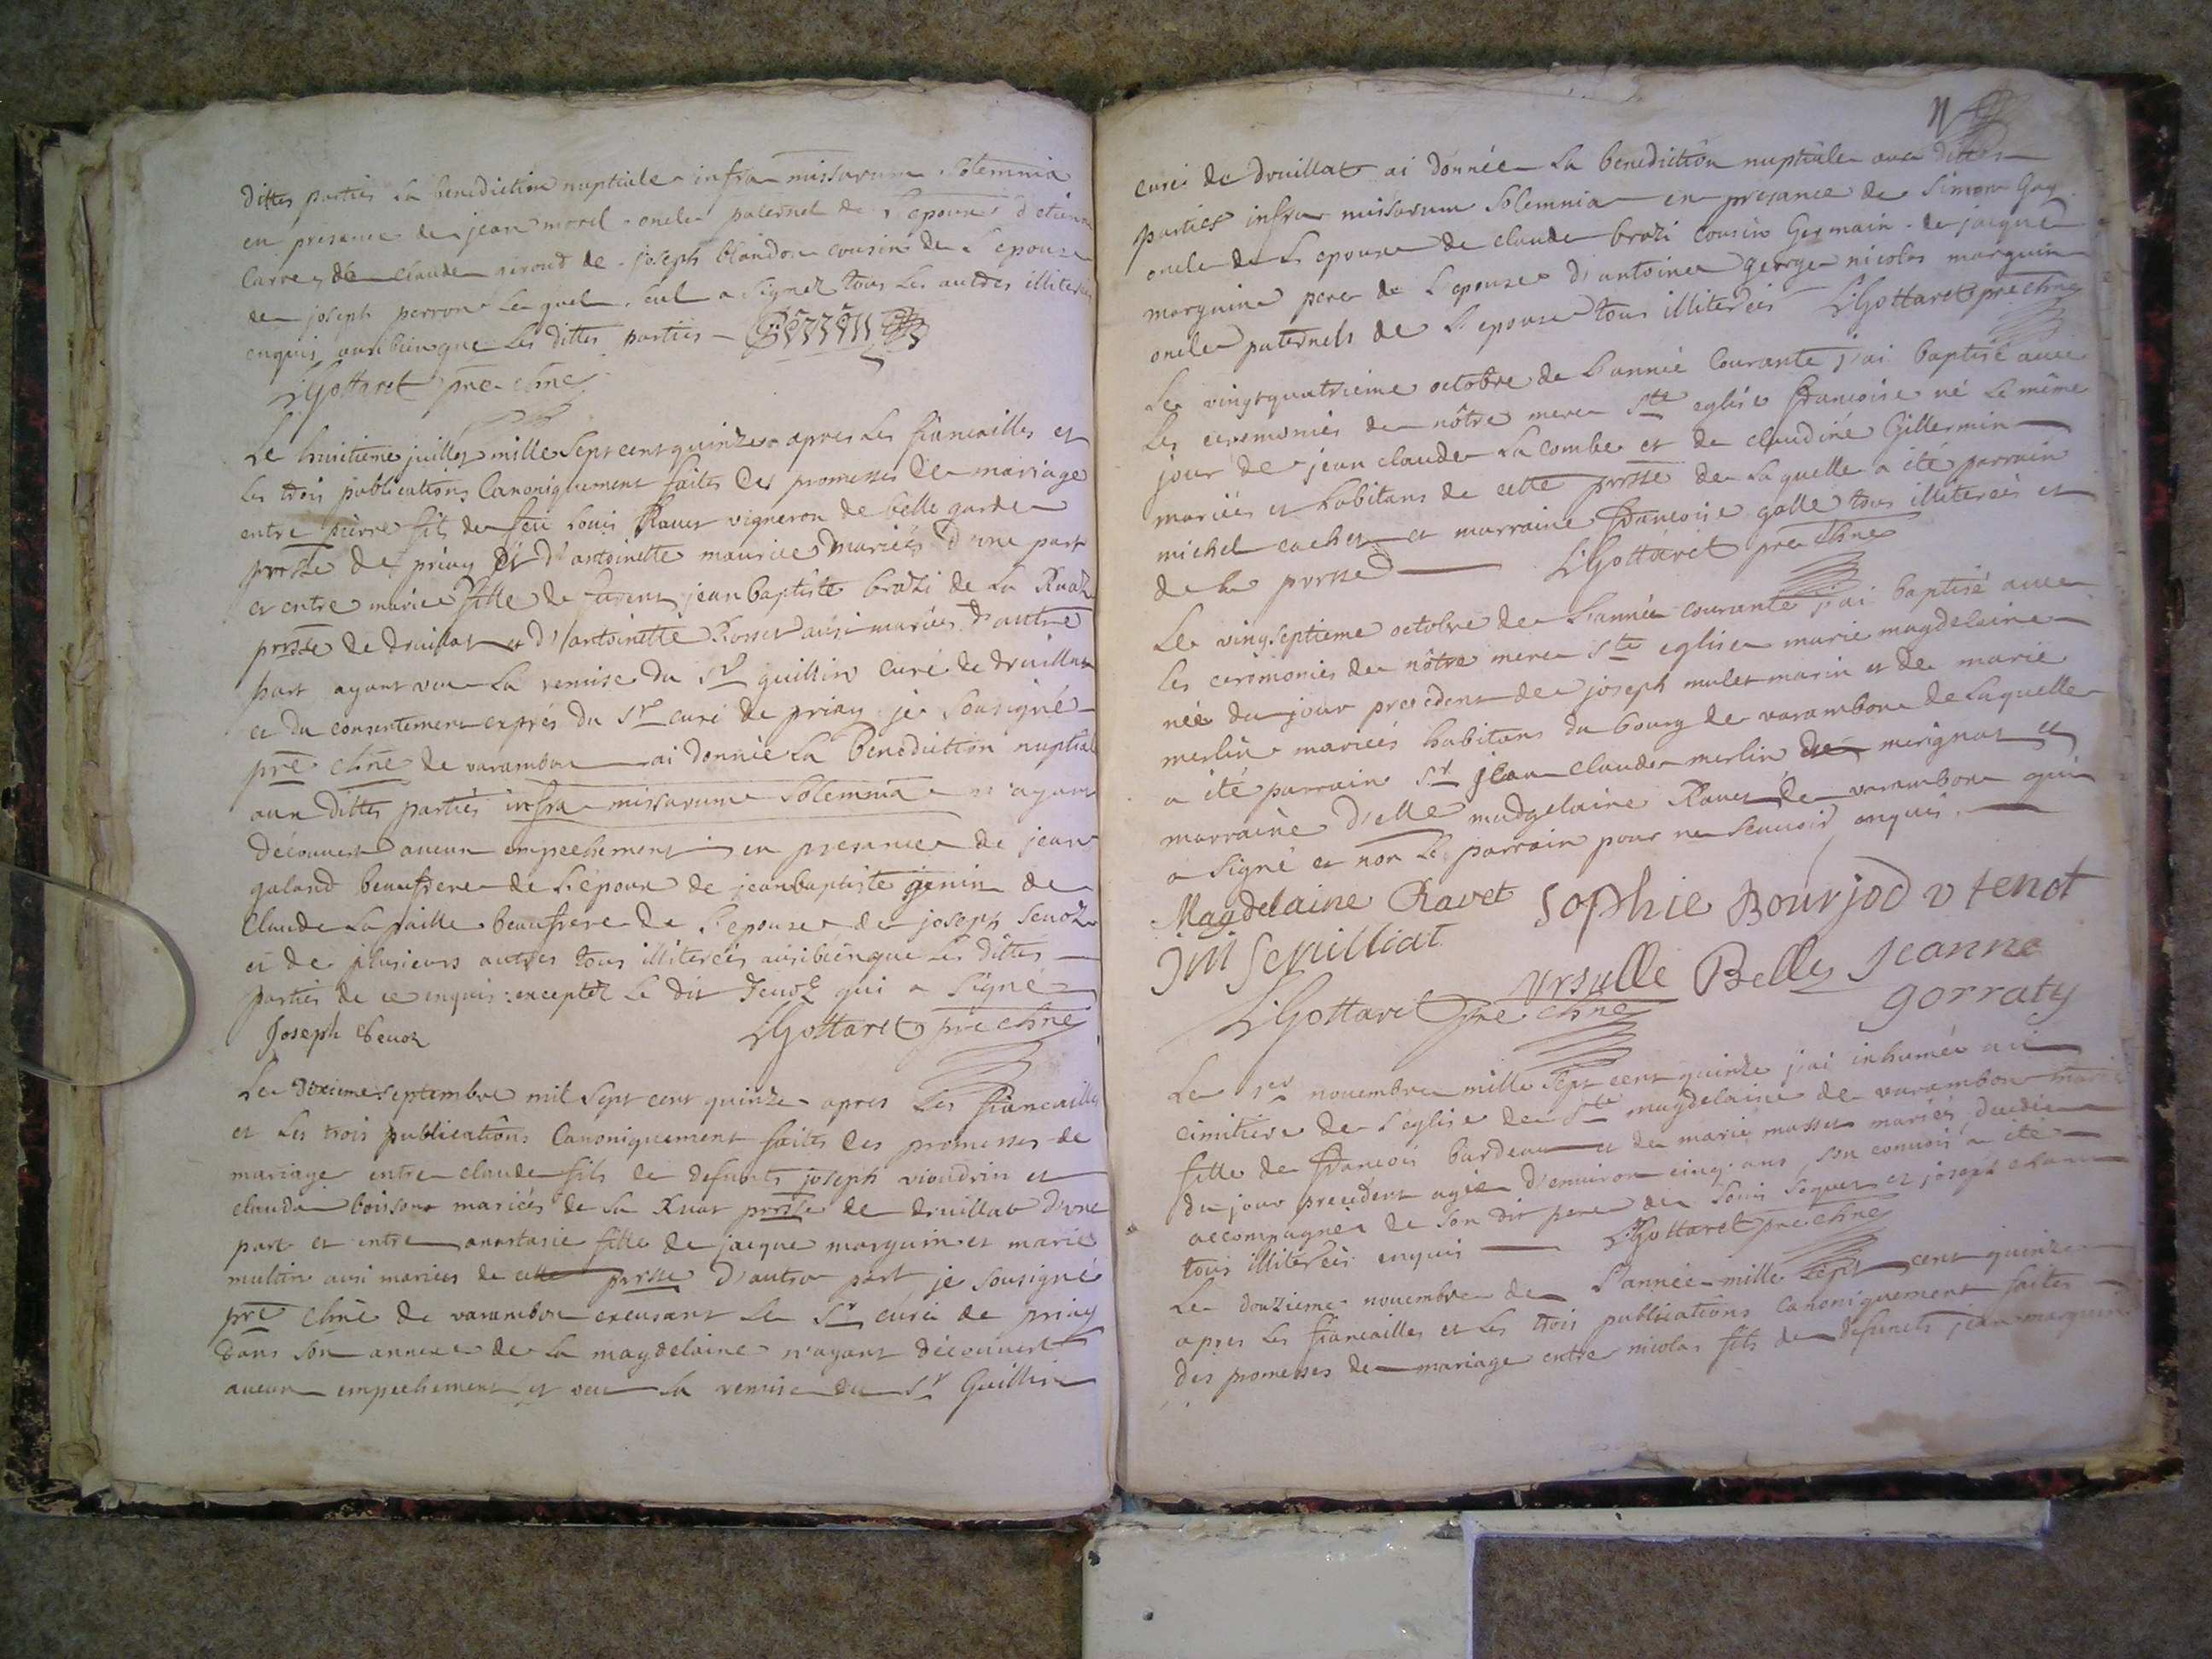 dittes parties la benediction nuptiale infra missarum solemnia
en presence de jean morel oncle paternel de l'epoux d'etienne
Carre de claude giroud de joseph blandon cousin de l'epouse
de joseph perron lequel seul a signez tous les autres illiterés
enquis aussi bien que les dittes parties Perron
L Gottaret pre chne
Le huitieme juillet mille sept cent quinze apres les fiancailles et
les trois publications Canoniquement faites des promesses de mariage
entre pierre fils de feu louis Ravet vigneron de belle garde
prsse de priay et d'antoinette maurice mariés d'une part
et entre marie fille de jean baptiste brazi de la Ruaz
prsse de druillat et d'antoinette Rosset aussi mariés d'autre
part ayant veu la remise du Sr guillin curé de druillat
et du consentement exprés du Sr curé de priay je sousigné
pre chne de varambon ai donnée la benediction nuptiale
aux dittes parties infra missarum solemnia n'ayant
découvert aucun empechement en presence de jean
galand beaufrere de l'epoux de jeanbaptiste genin de
Claude la paille beaufrere de l'epouse de joseph Seuoz
et de plusieurs autres tous illiterés aussi bien que les dittes
parties de ce enquis excepté le dit Seuoz qui a signé
Joseph Seuoz L Gottaret pre chne
Le dixieme septembre mil sept cent quinze apres les fiancailles
et les trois publications Canoniquement faites des promesses de
mariage entre claude fils de defunts joseph vioudrin et
clauda boisson mariés de la Ruat prsse de druillat d'une
part et entre anastasie fille de jacque marguin et marie
multin aussi mariés de cette prsse d'autre part je sousigné
pre chne de varambon excusant le Sr curé de priay
dans son annexe de la magdelaine n'ayant découvert
aucun empechement et veu la remise du Sr Guillin
11
curé de druillat ai donnée la benediction nuptiale aux dittes
parties infra missarum solemnia en presance de Simon Gay
oncle de l'epoux de claude brazi cousin Germain de jacque
marguin pere de l'epouse d'antoine george nicolas marguin
oncle paternels de l'epouse tous illiterés L Gottaret pre chne
Le vingtquatrieme octobre de l'année Courante j'ai baptisé avec
les ceremonies de nôtre mere Ste eglise francoise né le même
jour de jean claude la combe et de claudine Gillermin
mariés et habitans de cette prsse de laquelle a été parrain
michel cachet et marraine francoise galle tous illiterés et
de la prsse L Gottaret pre chne
Le vingtseptieme octobre de l'année courante j'ai baptisé avec
les ceremonies de nôtre mere Ste eglise marie magdelaine
née du jour precedent de joseph mulet marin et de marie
merlin mariés habitans du bourg de varambon de laquelle
a été parrain Sr jean claude merlin de merignat et
marraine d'elle madgelaine Ravet de varambon qui
a signé et non le parrain pour ne scauoir enquis
Magdelaine Ravet Sophie Bourjod v tenot
Ursulle Belle Jeanne
gorraty
L Gottaret pre chne
Le 1er novembre mille sept cent quinze j'ai inhumée au
cimitiere de l'eglise de Ste magdelaine de varambon marie
fille de francois bardeau et de marie masset mariés
du jour precedent agée d'environ cinq ans, son convoi a été
accompagné de son dit pere de louis soquet et joseph
tous illiterés enquis L Gottaret pre chne
Le douzieme novembre de l'année mille sept cent quinze
apres les fiancailles et les trois publications canoniquement faites
des promesses de mariage entre nicolas fils de defunts jean marguin